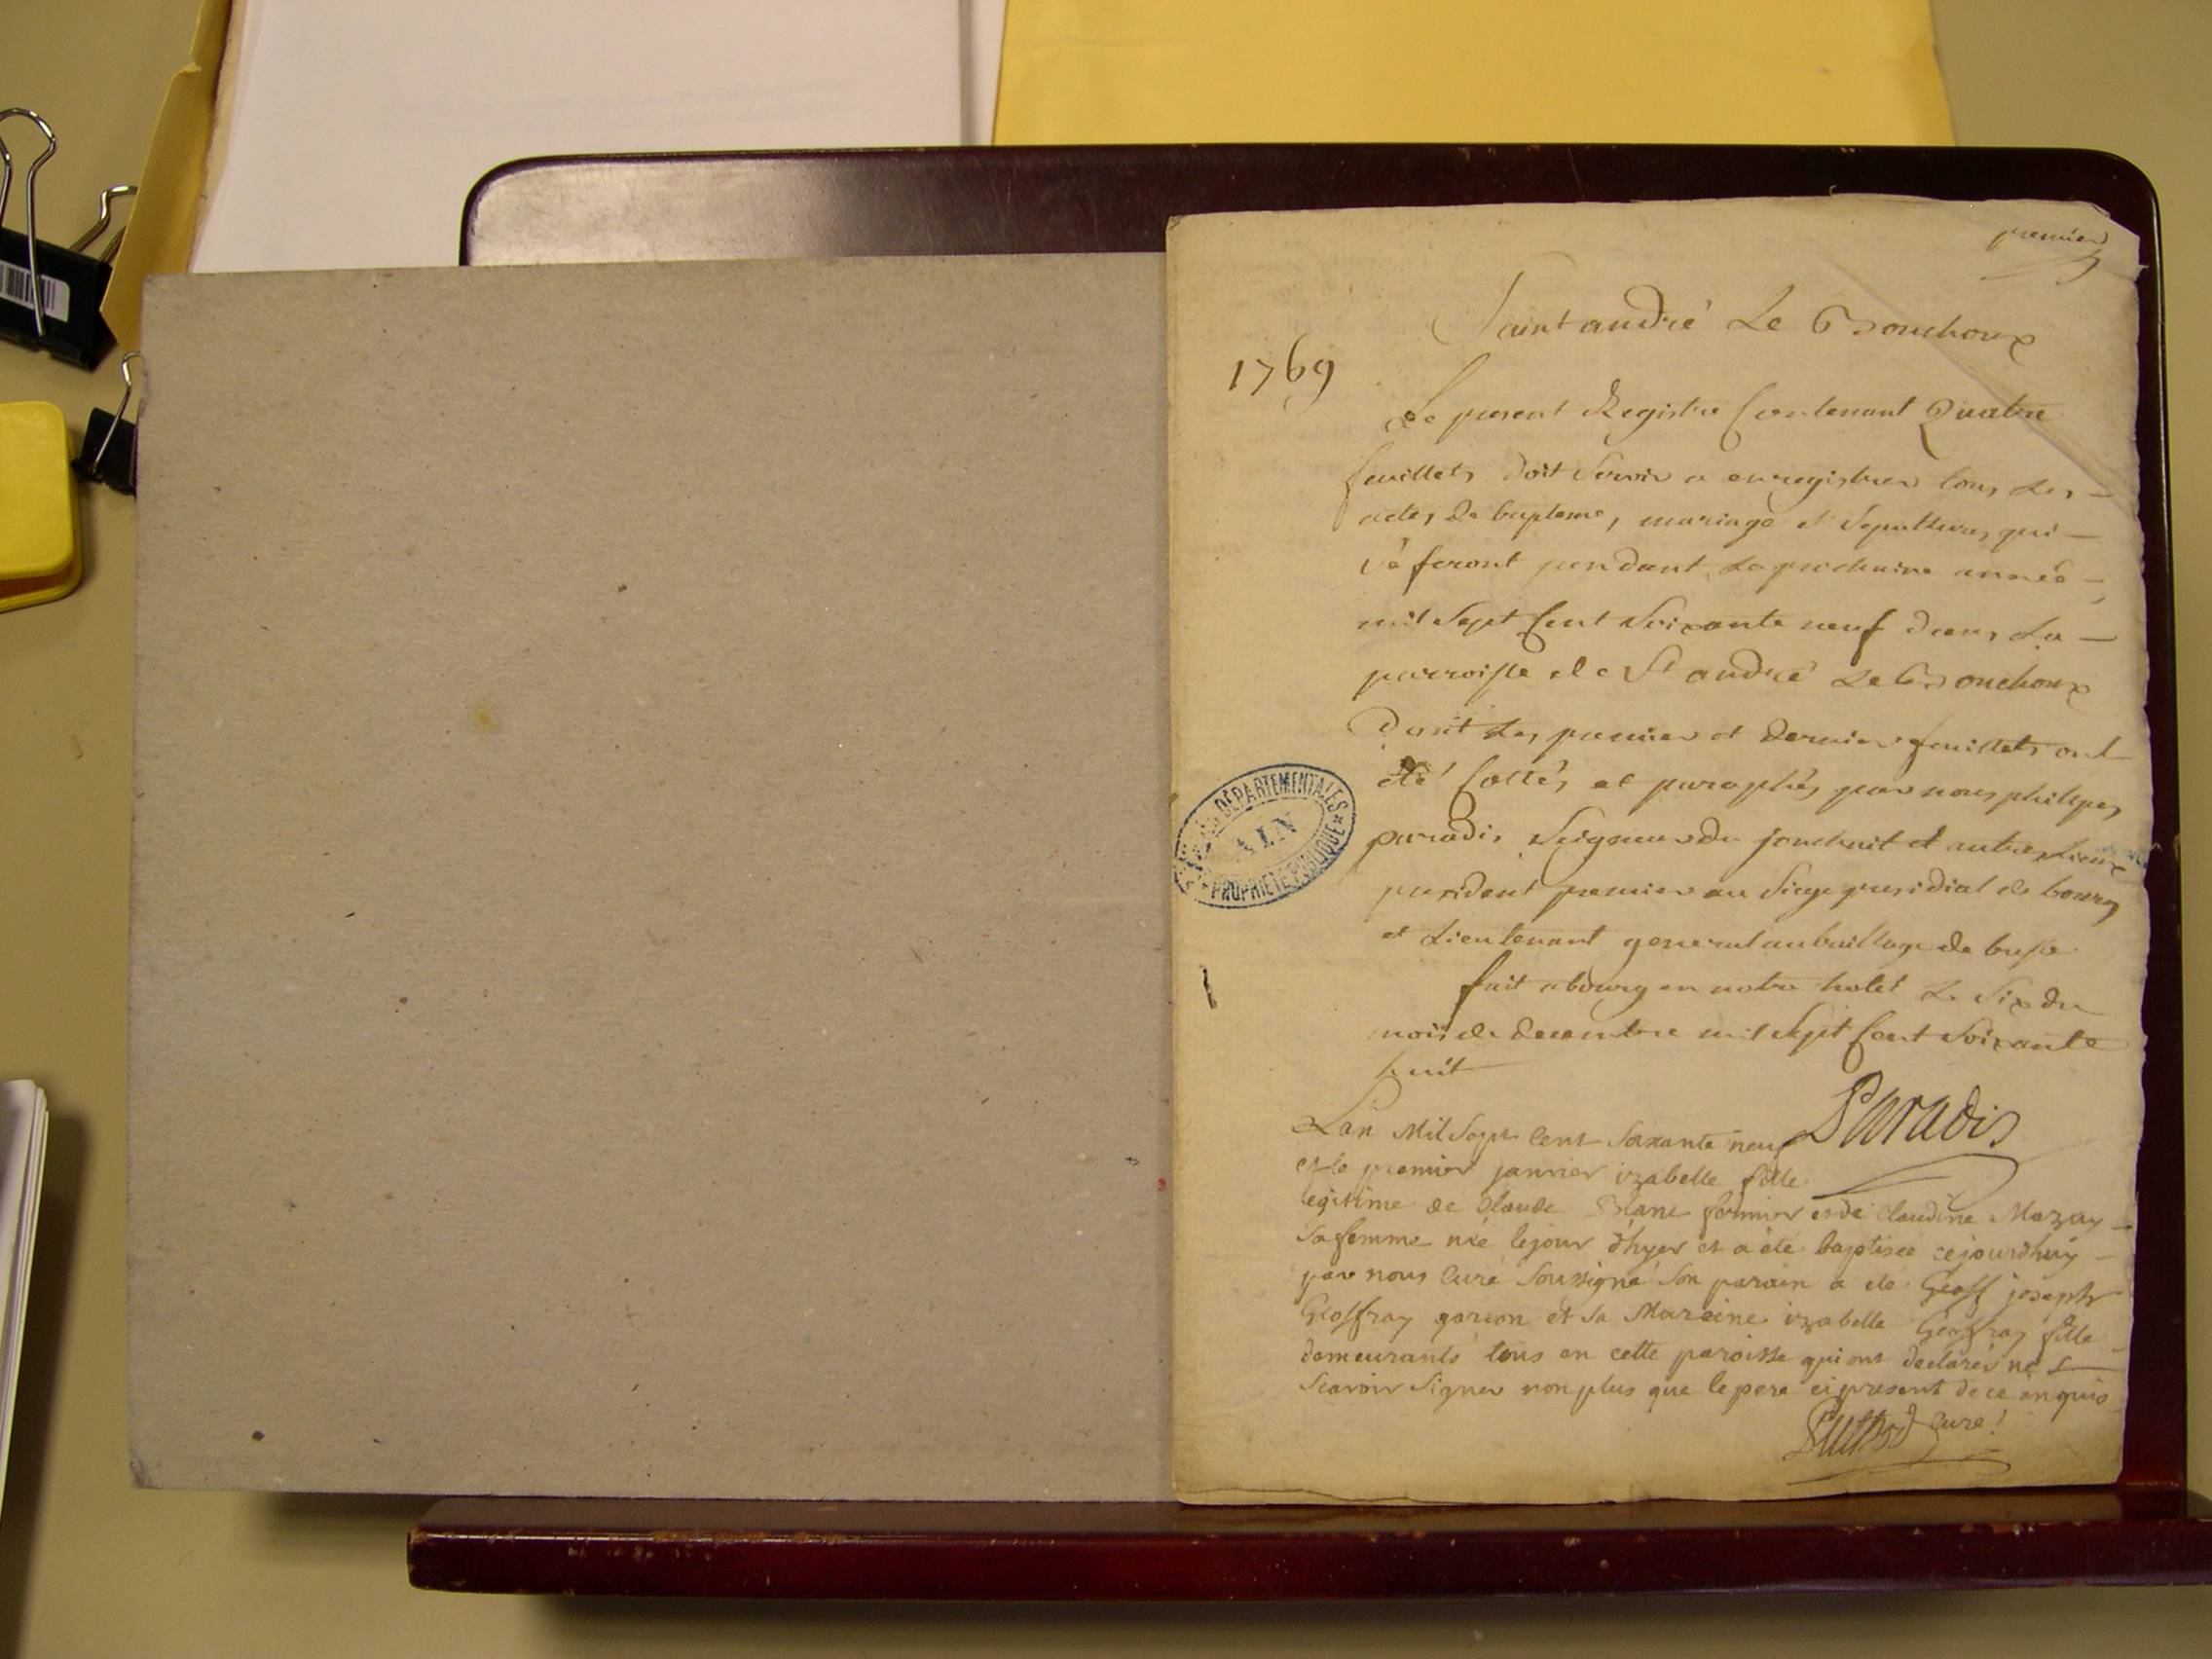 premier
Saint andré Le Bouchoux
1769
Le present Registre Contenant Quatre
feuillets doit servir a enregistrer tous les
actes de bapteme, mariage et sepultures qui
se feront pendant la prochaine année
mil sept Cent soixante neuf dans la
parroisse de St andré Le Bouchoux
dont les premier et dernier feuillets ont
été Cottés et paraphés par nous philipes
paradis seigneur du et autres Lieux
president premier au siege presidial de bourg
et Lieutenant general au baillage de
fait a bourg en notre hotel le six du
mois de decembre mil sept Cent soixante
huit
Paradis
L'an Mil Sept cent soixante neuf
et le premier janvier izabelle fille
legitime de Claude Blanc fermier et de claudine Mazuy
sa femme née le jour d'hyer et a été baptisée cejourdhuy
par nous curé soussigné son parain a été Geoff joseph
Geoffray garson et sa Maraine izabelle Geoffray fille
demeurants tous en cette paroisse qui ont declarés ne s
scavoir signer non plus que le pere ci present de ce enquis
curé
ARCHIVES DÉPARTEMENTALES
AIN
* PROPRIÉTÉ PUBLIQUE *